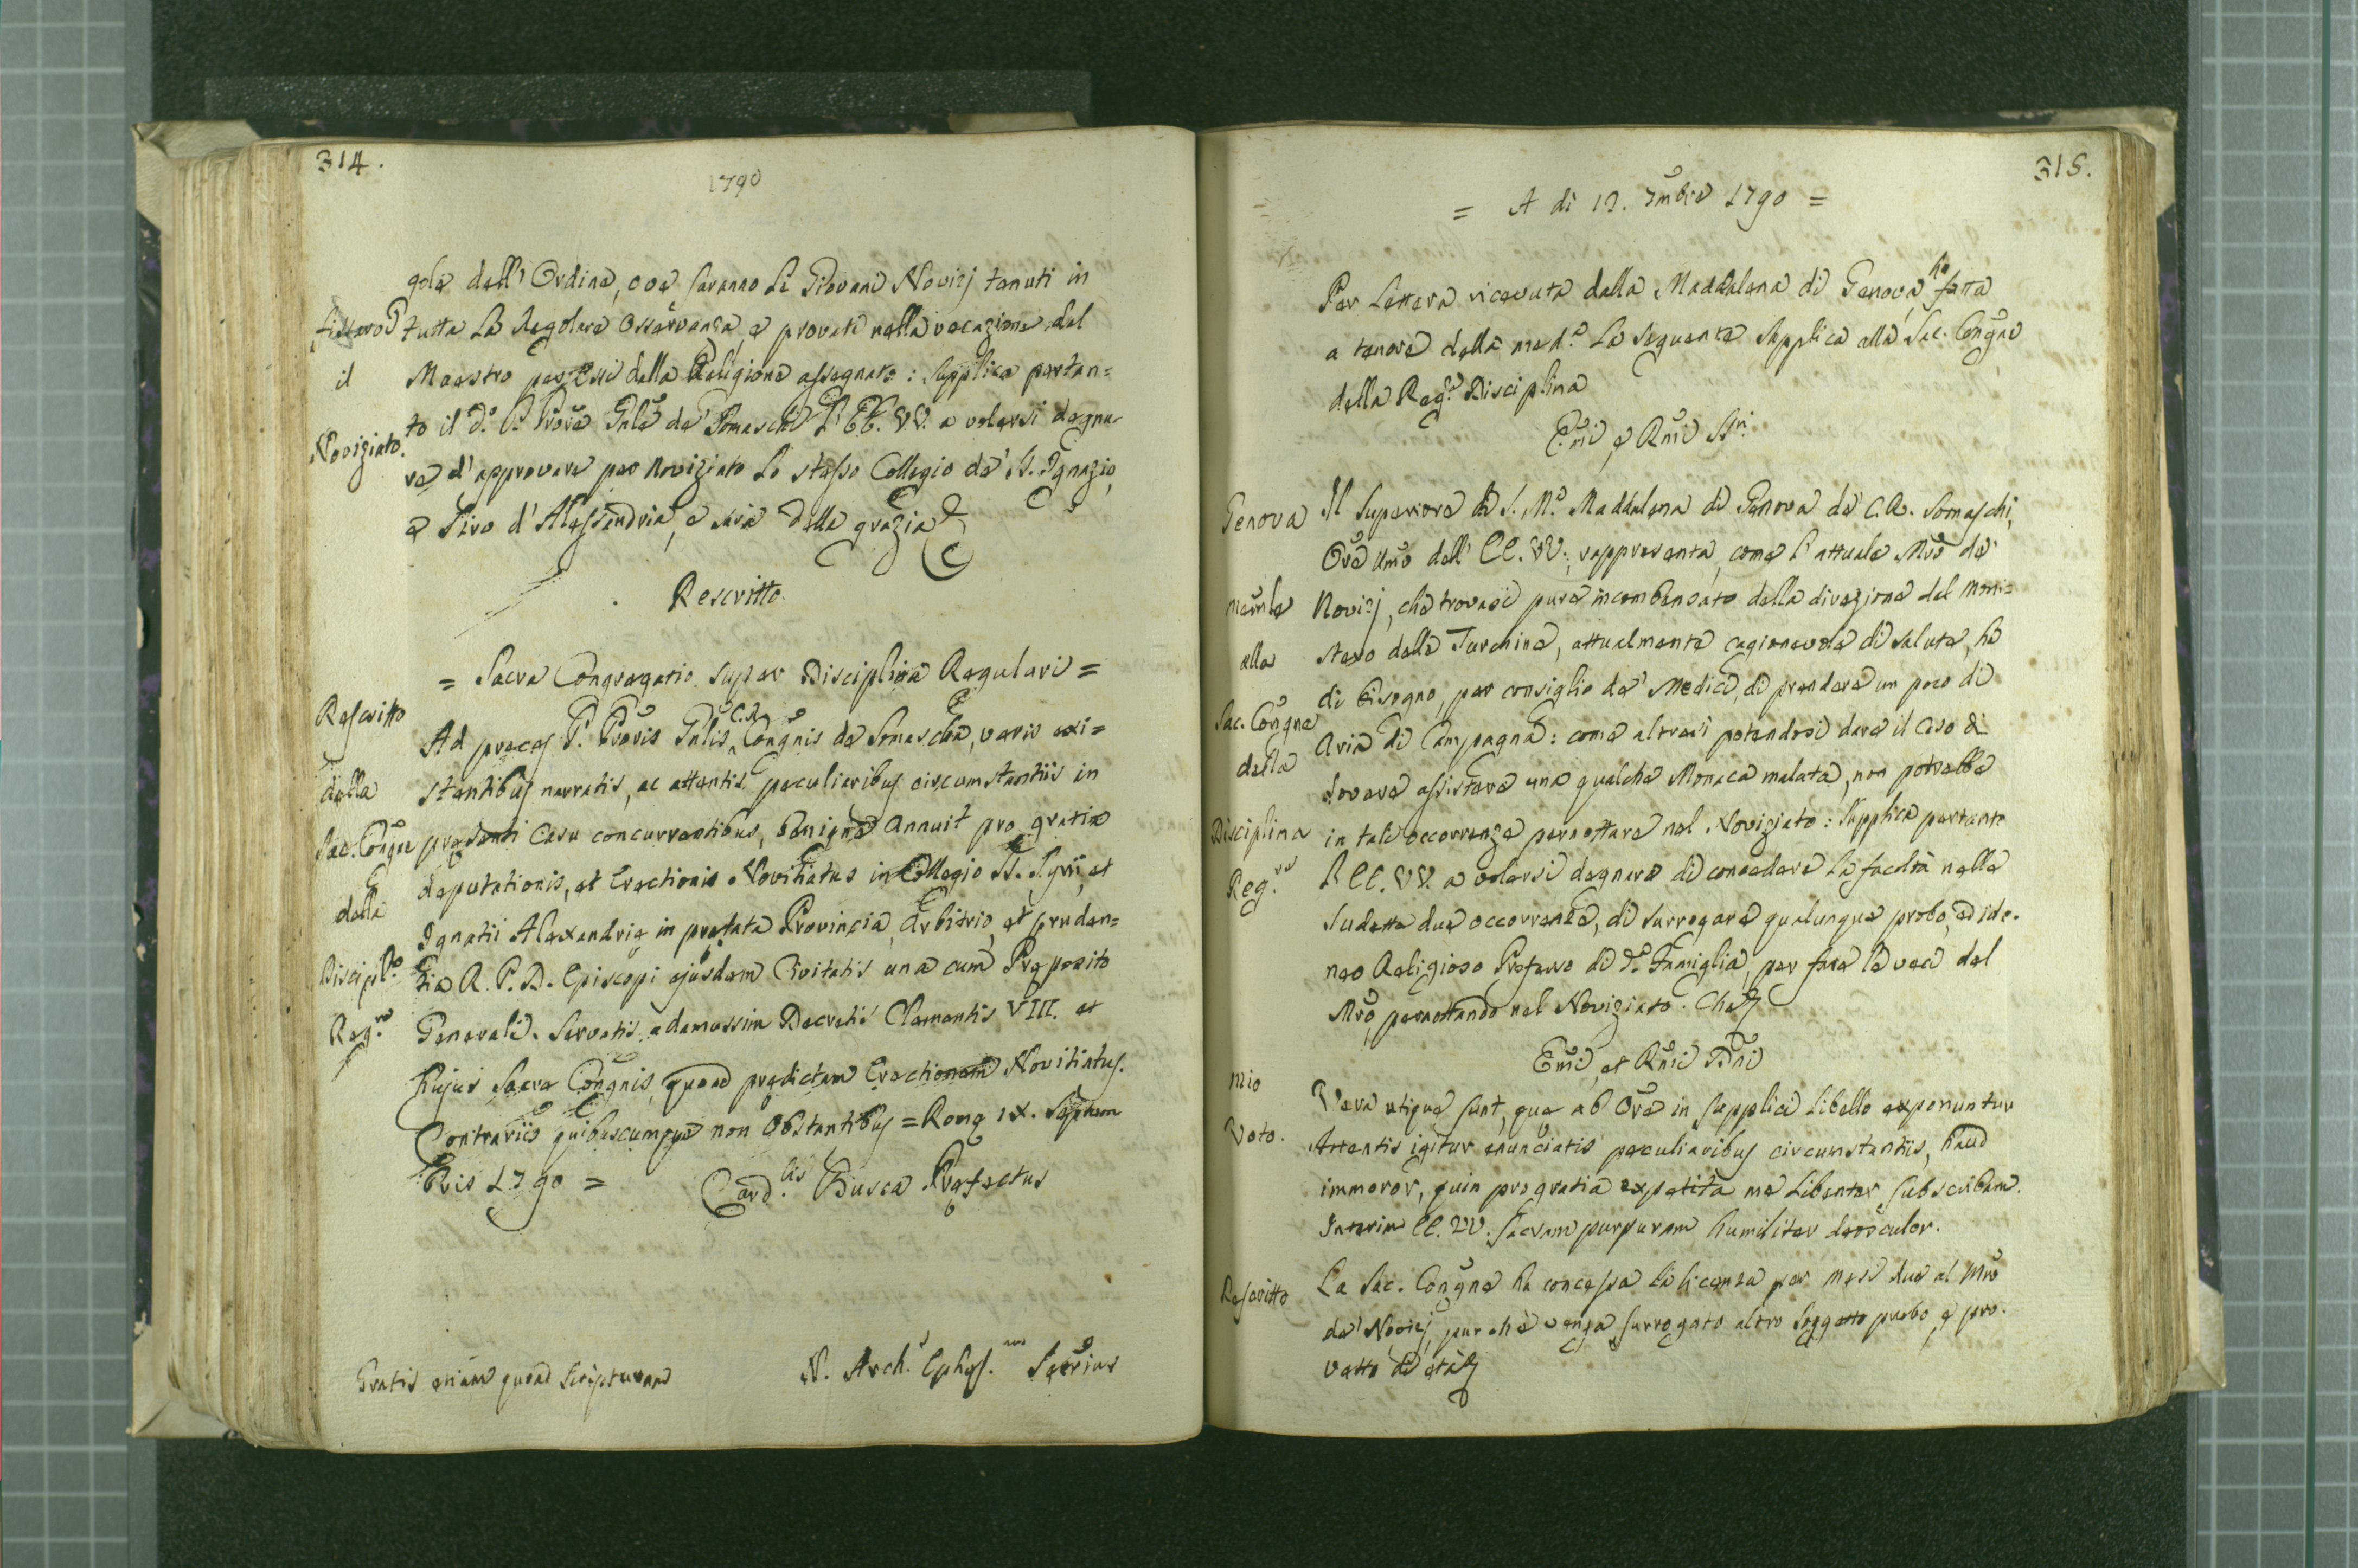 314.
1790
gole dell' Ordine, ove saranno li Giovani Novizj tenuti in
tutta la Regolare Osservanza, e provati nella vocazione dal
il Maestro per Essi dalla Religione assegnato: Supplica pertan=
to il d.º P. Prõre Gñle de' Somaschi l' EE. VV. a volersi degna-
Novigiato.
re d' approvare per Novigiato lo stesso Collegio de' SS. Ignazio,
e Siro d' Alessandria, e sarà della grazia
Rescritto
= Sacra Congregatio super Disciplina Regulari =
Rescritto
Ad preces P. Prõris Gñlis C.R. Congñis de Somascha, veris exi=
della stantibus narratis, ac attentis peculiaribus circumstantiis in
Sac. Congñe presenti Casu concurrentibus, benigne annuit pro gratia
deputationis, et Erectionis Novitiatus in Collegio SS. Syri, et
della
Ignatii Alexandrie in prefata Provincia, Arbitrio, et pruden=
Discipl.ª
tia R. P. D. Episcopi ejusdem Civitatis una cum Preposito
Reg.re Generali. Servatis adamussim Decretis Clementis VIII. et
hujus Sacre Congñis, quoad predictam Erectionem Novitiatus.
Contrariis quibuscumque non Obstantibus = Rome IX. Septem
bris 1790 = Card.lis Busca Prefectus
Gratis etiam quoad Scripturam N. Arch. Ephes. Secrius
315.
= A di 12. 7mbre 1790 =
Per Lettera ricevuta dalla Maddalena di Genova, ho fatta
a tenore della med.ª la seguente Supplica alla Sac. Congñe
della Reg.re Disciplina
Emĩ, e Rmĩ Sg.ri
Genova Il Superiore di S. M.ª Maddalena di Genova de' C.R. Somaschi,
Orẽ Umõ dell' EE. VV., rappresenta, come l' attuale Mrõ de'
Novizj, che trovasi pure incombensato della direzione del Moni=
alla stero delle Turchine, attualmente cagionevole di salute, ha
di bisogno, per consiglio de' Medici, di prendere un poco di
Sac. Congñe
Aria di Campagna: come altresì potendosi dare il Caso di
della
dovere assistere una qualche Monaca malata, non potrebbe
Disciplina in tale occorrenza pernottare nel Novigiato: Supplica pertanto
Reg.re l' EE. VV. a volersi degnare di concedere la facoltà nelle
sudette due occorrenze, di surrogare qualunque probo, ed ido-
neo Religioso Professo di d.ª Famiglia, per fare le veci del
Mrõ, pernottando nel Novigiato. Che
Emĩ, et Rmĩ Dñi
mio Vera utique sunt, que ab Orẽ in supplici libello exponuntur
Voto. Attentis igitur enunciatis peculiaribus circumstantiis, haud
immoror, quin pro gratia expetita me libenter subscribam.
Interim EE. VV. Sacram purpuram humiliter deosculor.
Rescritto La Sac. Congñe ha concessa la licenza per mesi due al Mrõ
de' Novizj, purchè venga surrogato altro Soggetto probo, e pro-
vetto di età